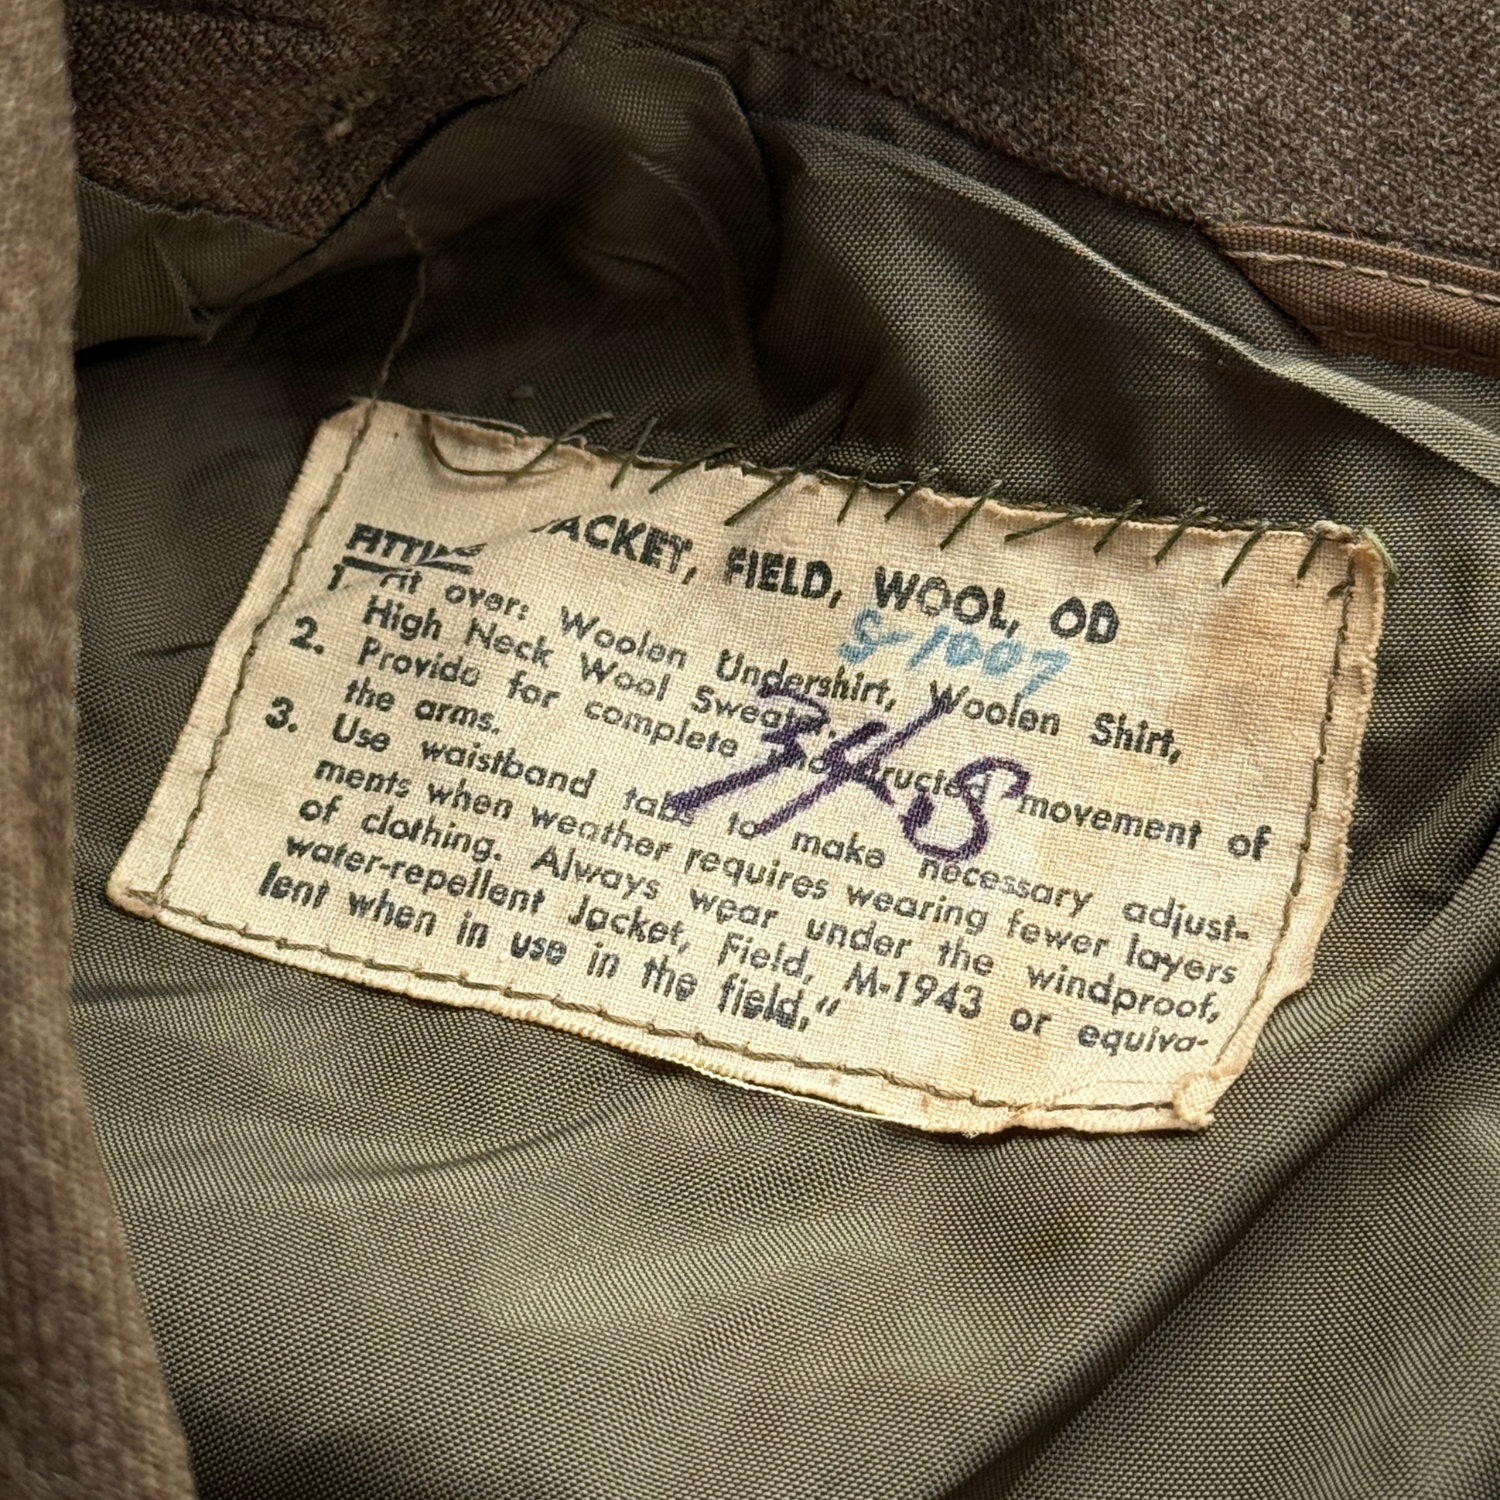 JACKET, FIELD, WOOL, OD
S-1007
FITTING
1 Fit over: Woolen Undershirt, Woolen Shirt,
High Neck Wool Sweater.
2. Provide for complete unobstructed movement of
the arms.
3. Use waistband tabs to make necessary adjust-
ments when weather requires wearing fewer layers
of clothing. Always wear under the windproof,
water-repellent Jacket, Field, M-1943 or equiva-
lent when in use in the field,"